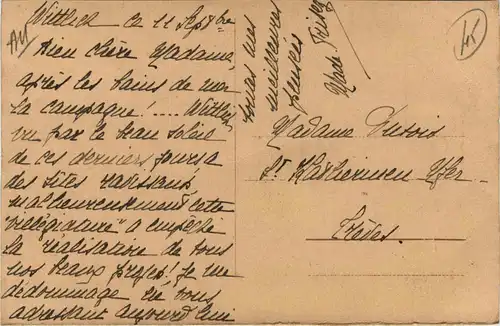 Wittlich ce 11 Septbre
Bien chère Madame,
après les bains de mer
la campagne! .... Wittlich
vu par le beau soleil
de ces derniers jours a
des sites ravissants,
malheureusement cette
"villégiature" a empêché
la réalisation de tous
nos beaux projets! Je me
dédommage en vous
adressant aujourd'hui
toutes mes
meilleures
pensées
Madame Dubois
St Katherinen Ufer
Trèves.